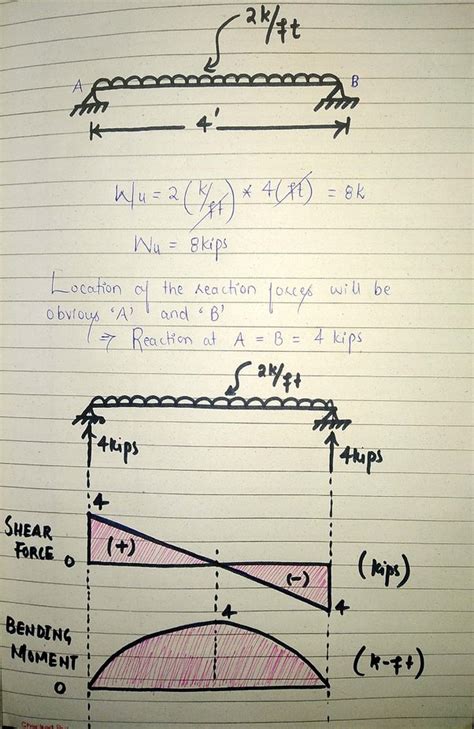 2k/ft
A B
4'
Wu = 2 (k/ft) * 4(ft) = 8k
Wu = 8kips
Location of the reaction forces will be
obvious 'A' and 'B'
⇒ Reaction at A = B = 4 kips
2k/ft
4kips 4kips
4
SHEAR
FORCE 0 (+) (-) (kips)
4
4
BENDING
MOMENT (k-ft)
0